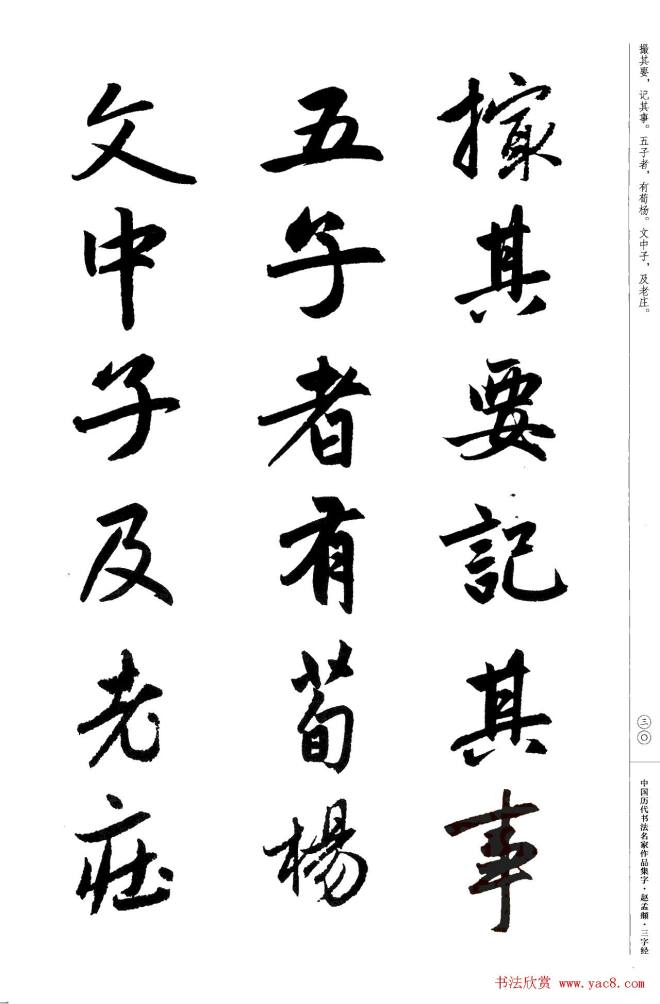 撮其要，记其事。五子者，有荀杨。文中子，及老庄。
撮其要記其事
五子者有荀楊
文中子及老莊
三〇
中国历代书法名家作品集字·赵孟頫·三字经
书法欣赏 www.yac8.com